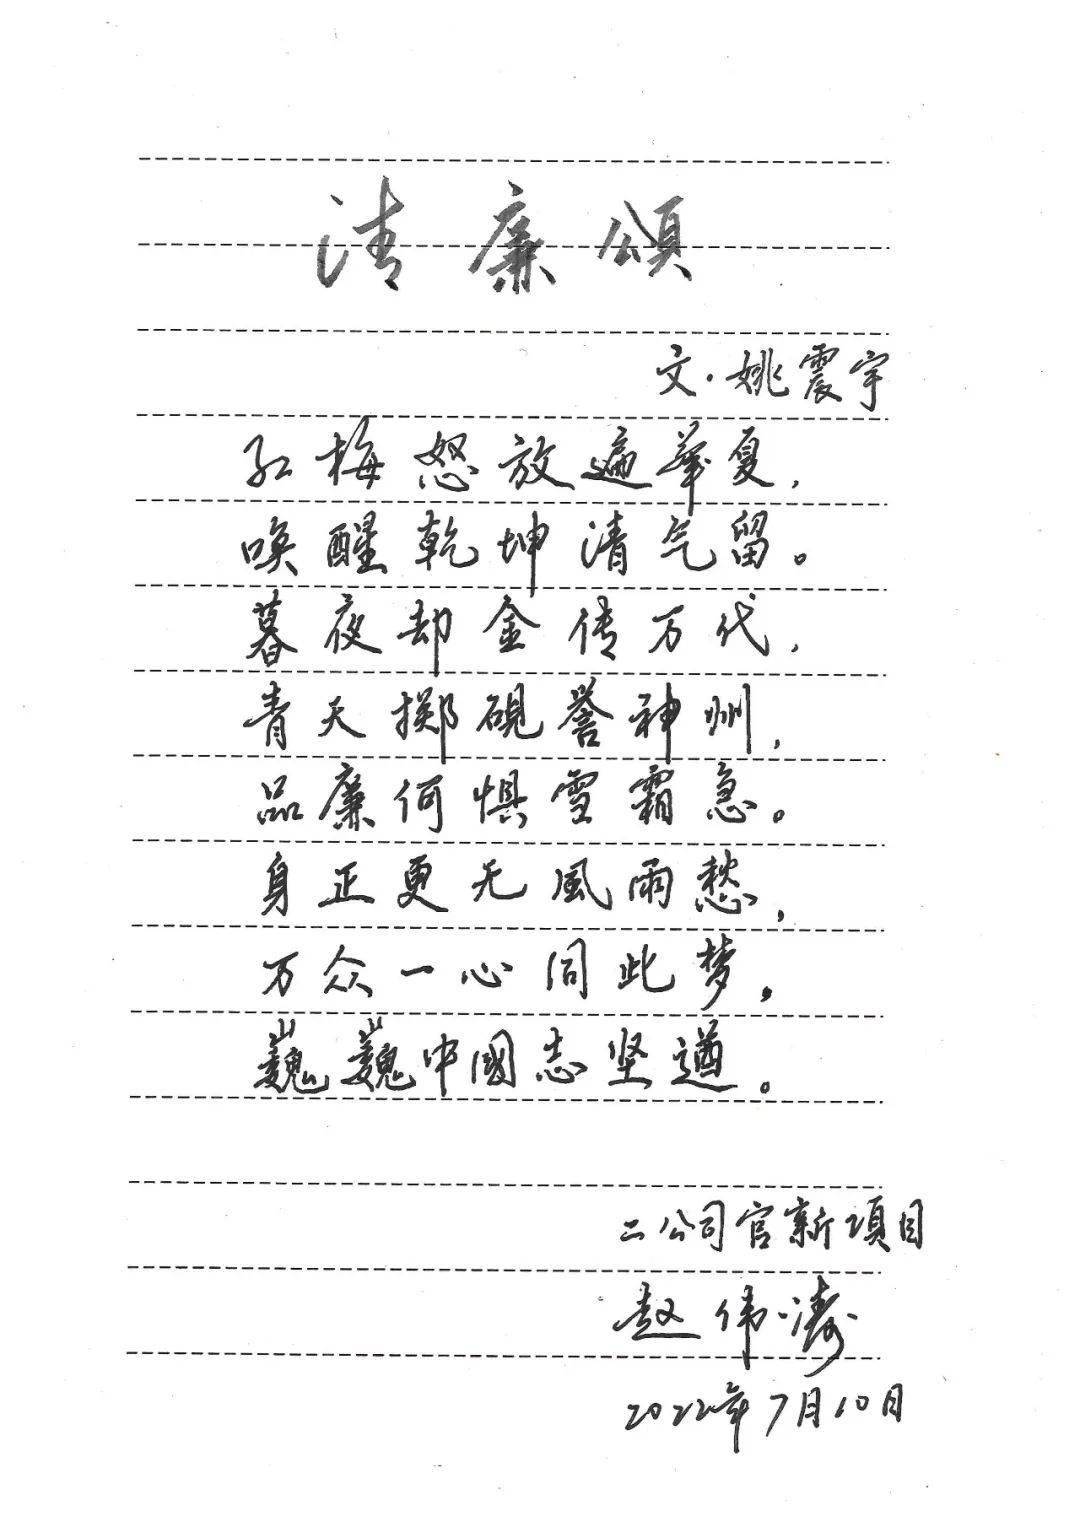 清廉頌
文·姚震宇
红梅怒放遍華夏，
唤醒乾坤清气留。
暮夜却金传万代，
青天掷砚誉神州，
品廉何惧雪霜急。
身正更无風雨愁，
万众一心同此梦，
巍巍中國志坚遒。
二公司官新項目
赵伟涛
2022年7月10日